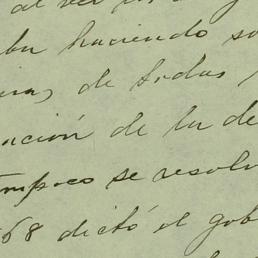 al ver
haciendo
de todas
ción de la de
mpoco se resolv
68 dictó el gob